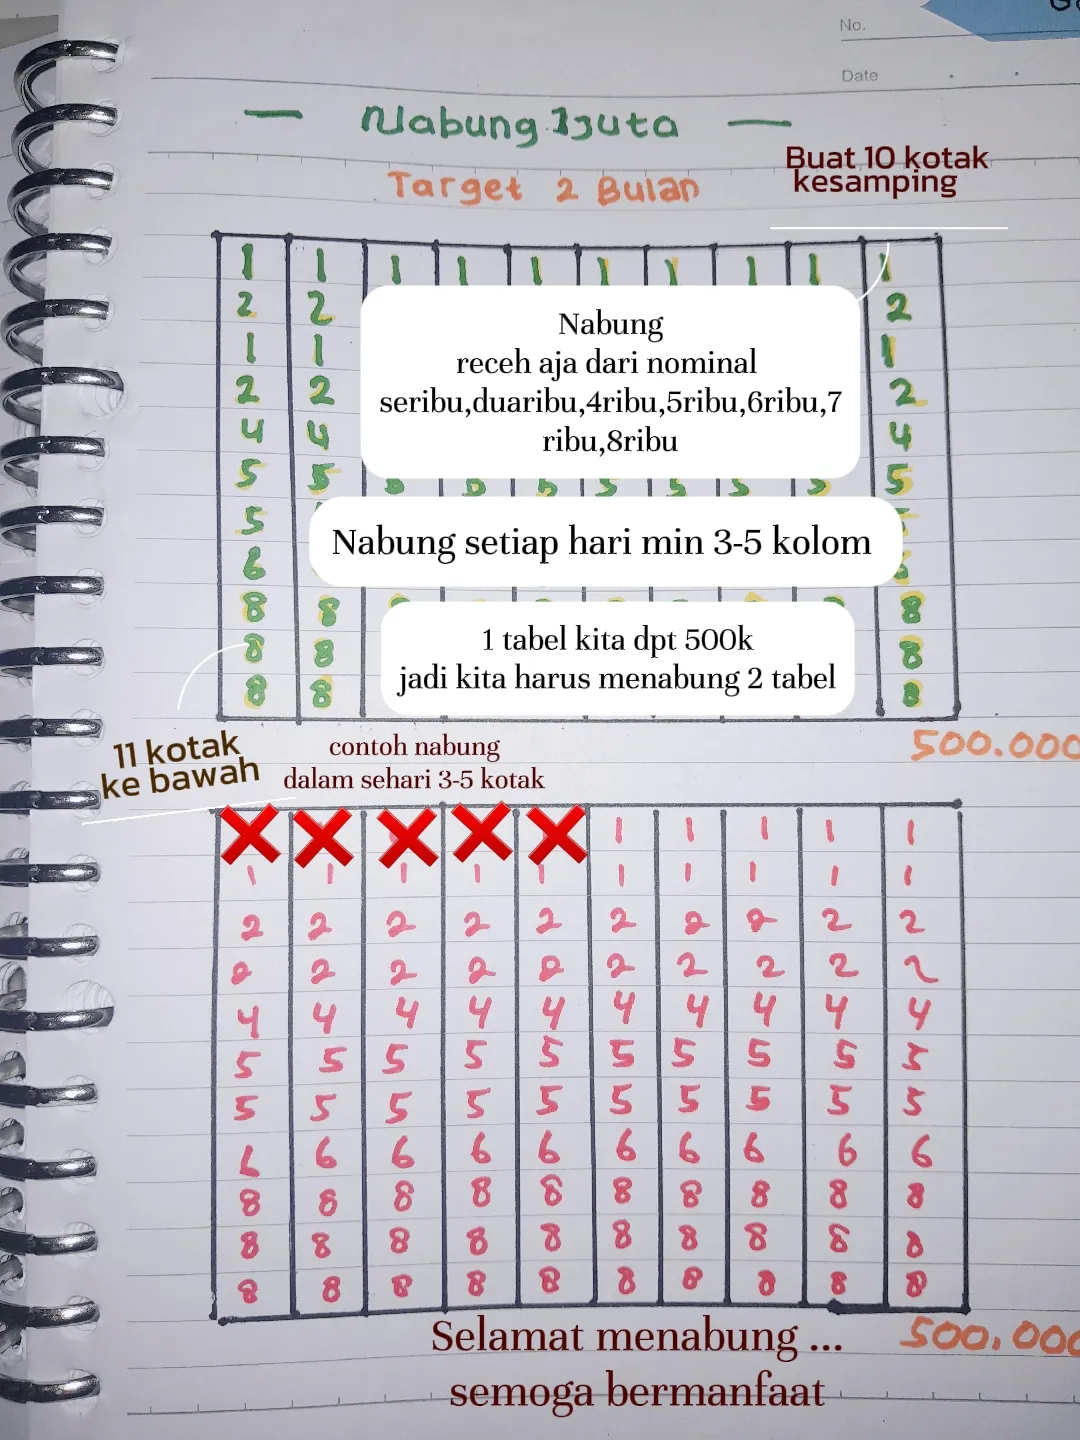 No.
Date
Nabung 1juta
Target 2 Bulan
Buat 10 kotak
kesamping
1 1 1 1 1 1 1 1 1 1
2 2 2
1 1 1
2 2 2
4 4 4
5 5 5 5 5 5 5 5 5 5
5
6
8 8 8
8 8 8
8 8 8
Nabung
receh aja dari nominal
seribu,duaribu,4ribu,5ribu,6ribu,7
ribu,8ribu
Nabung setiap hari min 3-5 kolom
1 tabel kita dpt 500k
jadi kita harus menabung 2 tabel
500.000
11 kotak
ke bawah
contoh nabung
dalam sehari 3-5 kotak
1 1 1 1 1
1 1 1 1 1 1 1 1 1 1
2 2 2 2 2 2 2 2 2 2
2 2 2 2 2 2 2 2 2 2
4 4 4 4 4 4 4 4 4 4
5 5 5 5 5 5 5 5 5 5
5 5 5 5 5 5 5 5 5 5
6 6 6 6 6 6 6 6 6 6
8 8 8 8 8 8 8 8 8 8
8 8 8 8 8 8 8 8 8 8
8 8 8 8 8 8 8 8 8 8
500.000
Selamat menabung ...
semoga bermanfaat